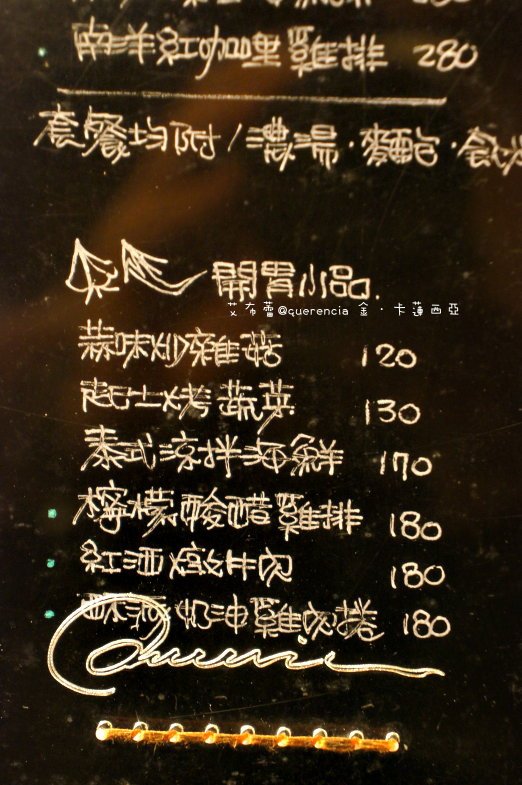 南洋紅咖哩雞排 280
套餐均附/濃湯·麵包·飲
開胃小品.
艾布蕾@querencia 金·卡蓮西亞
蒜味炒雜菇 120
起士烤蔬菜 130
泰式涼拌海鮮 170
檸檬酸醋雞排 180
紅酒燉牛肉 180
奶油雞肉捲 180